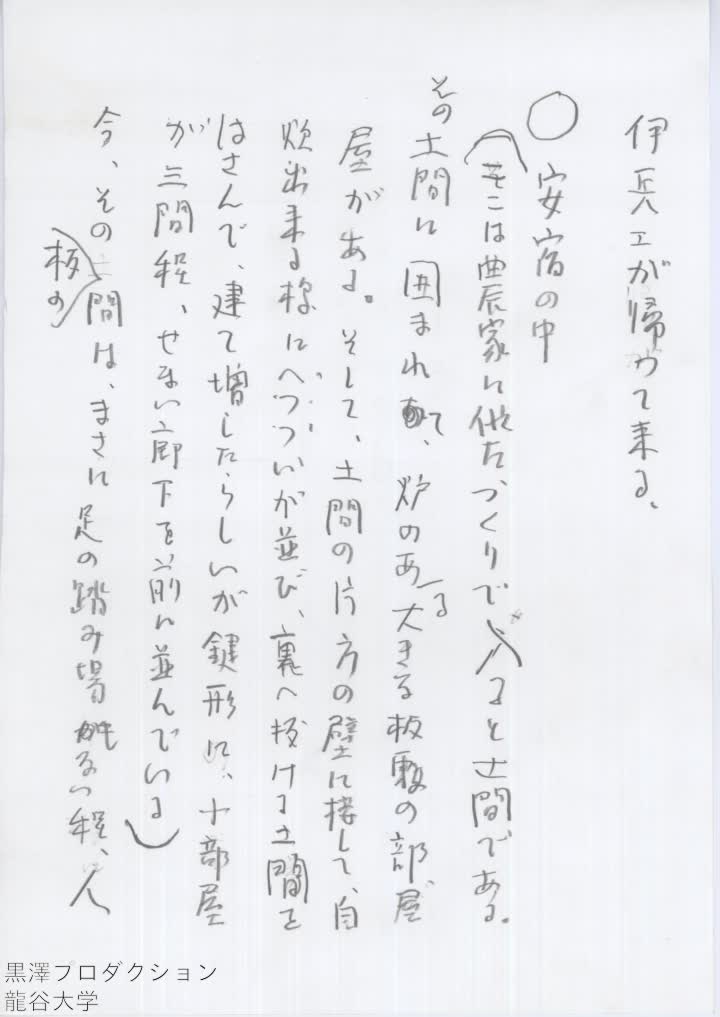 伊兵エが帰って来る。
○安宿の中
(そこは農家に似たつくりで、入ると土間である。
その土間に囲まれて、炉のある大きな板敷の部屋
屋がある。そして、土間の片方の壁に接して、自
炊出来る様にへっついが並び、裏へ抜ける土間を
はさんで、建て増したらしいが鍵形に、小部屋
が三間程、せまい廊下を前に並んでいる)
今、その板の間は、まさに足の踏み場もない程、人
黒澤プロダクション
龍谷大学